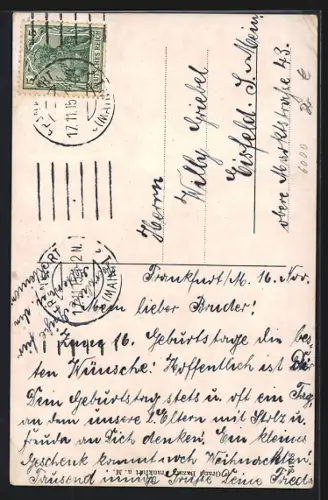 DEUTSCHES REICH
5 5
FRANKFURT
17.11.15
(MAIN)
FRANKFURT
(MAIN)
Herrn
Willy Griebel
Eisfeld. S. Mein.
obere Marktstraße 43.
Frankfurt/M. 16. Nov.
Mein lieber Bruder!
Zum 16. Geburtstage die bes-
ten Wünsche! Hoffentlich ist Dir
Dein Geburtstag stets u. oft ein Tag,
an dem unsere l. Eltern mit Stolz u.
freuda an Dich denken. Ein kleines
Geschenk kommt noch Weihnachten!
Tausend innige Grüße Deine Frieda